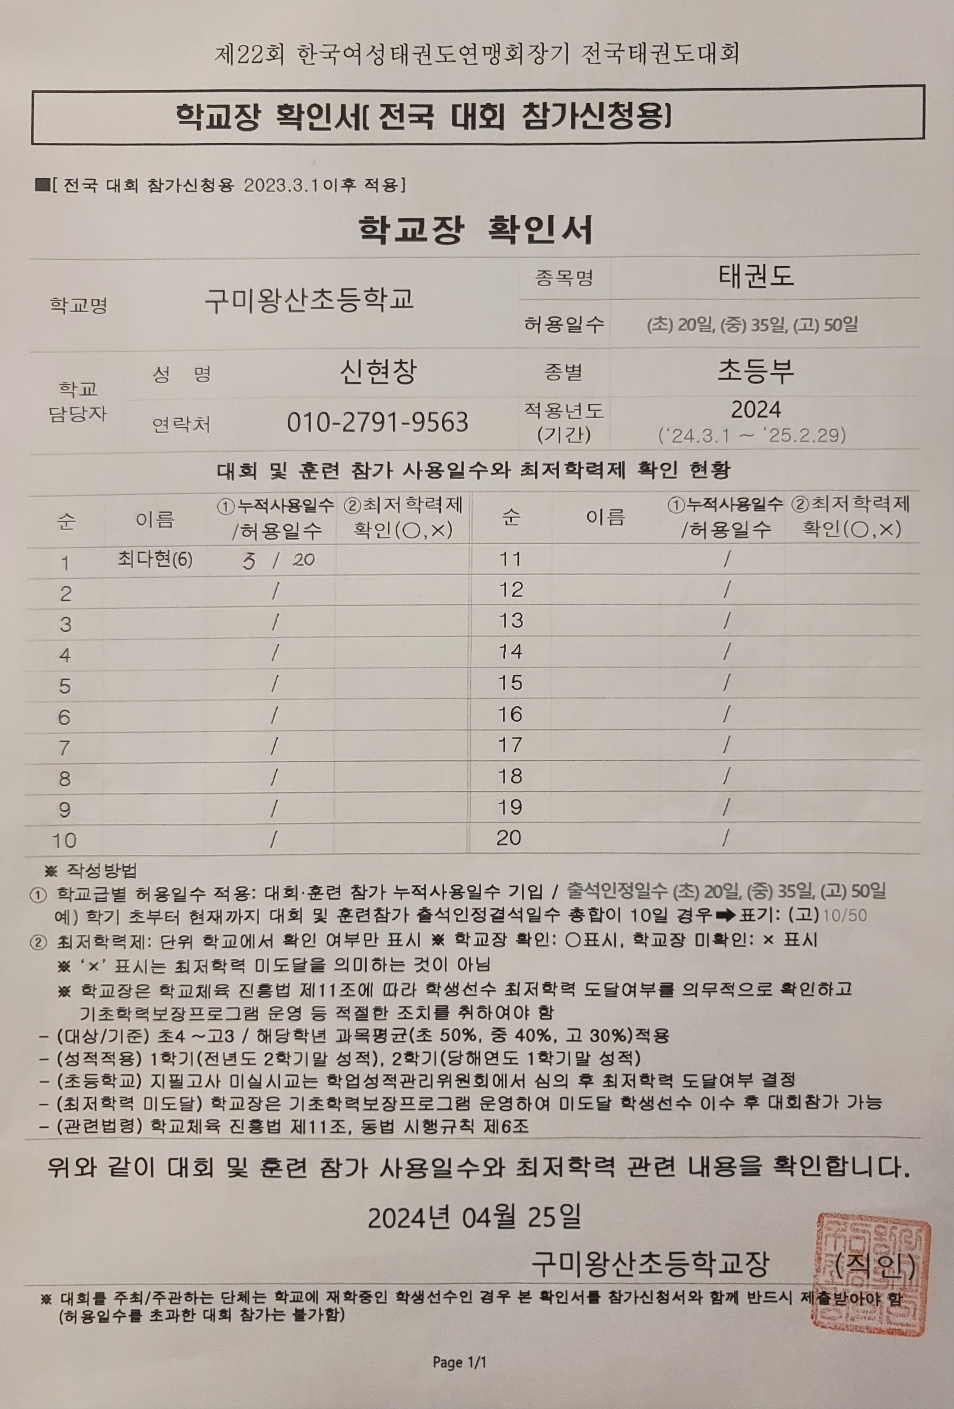 제22회 한국여성태권도연맹회장기 전국태권도대회
학교장 확인서[ 전국 대회 참가신청용]
■[ 전국 대회 참가신청용 2023.3.1이후 적용]
학교장 확인서
학교명 구미왕산초등학교 종목명 태권도
허용일수 (초) 20일, (중) 35일, (고) 50일
학교 담당자 성 명 신현창 종별 초등부
연락처 010-2791-9563 적용년도 (기간) 2024 (‘24.3.1 ~ ‘25.2.29)
대회 및 훈련 참가 사용일수와 최저학력제 확인 현황
순 이름 ①누적사용일수 /허용일수 ②최저학력제 확인(○,×) 순 이름 ①누적사용일수 /허용일수 ②최저학력제 확인(○,×)
1 최다현(6) 3 / 20 11 /
2 / 12 /
3 / 13 /
4 / 14 /
5 / 15 /
6 / 16 /
7 / 17 /
8 / 18 /
9 / 19 /
10 / 20 /
※ 작성방법
① 학교급별 허용일수 적용: 대회·훈련 참가 누적사용일수 기입 / 출석인정일수 (초) 20일, (중) 35일, (고) 50일
예) 학기 초부터 현재까지 대회 및 훈련참가 출석인정결석일수 총합이 10일 경우➡표기: (고)10/50
② 최저학력제: 단위 학교에서 확인 여부만 표시 ※ 학교장 확인: ○표시, 학교장 미확인: × 표시
※ ‘×’ 표시는 최저학력 미도달을 의미하는 것이 아님
※ 학교장은 학교체육 진흥법 제11조에 따라 학생선수 최저학력 도달여부를 의무적으로 확인하고
기초학력보장프로그램 운영 등 적절한 조치를 취하여야 함
- (대상/기준) 초4 ~고3 / 해당학년 과목평균(초 50%, 중 40%, 고 30%)적용
- (성적적용) 1학기(전년도 2학기말 성적), 2학기(당해연도 1학기말 성적)
- (초등학교) 지필고사 미실시교는 학업성적관리위원회에서 심의 후 최저학력 도달여부 결정
- (최저학력 미도달) 학교장은 기초학력보장프로그램 운영하여 미도달 학생선수 이수 후 대회참가 가능
- (관련법령) 학교체육 진흥법 제11조, 동법 시행규칙 제6조
위와 같이 대회 및 훈련 참가 사용일수와 최저학력 관련 내용을 확인합니다.
2024년 04월 25일
구미왕산초등학교장 (직인)
※ 대회를 주최/주관하는 단체는 학교에 재학중인 학생선수인 경우 본 확인서를 참가신청서와 함께 반드시 제출받아야 함
(허용일수를 초과한 대회 참가는 불가함)
Page 1/1